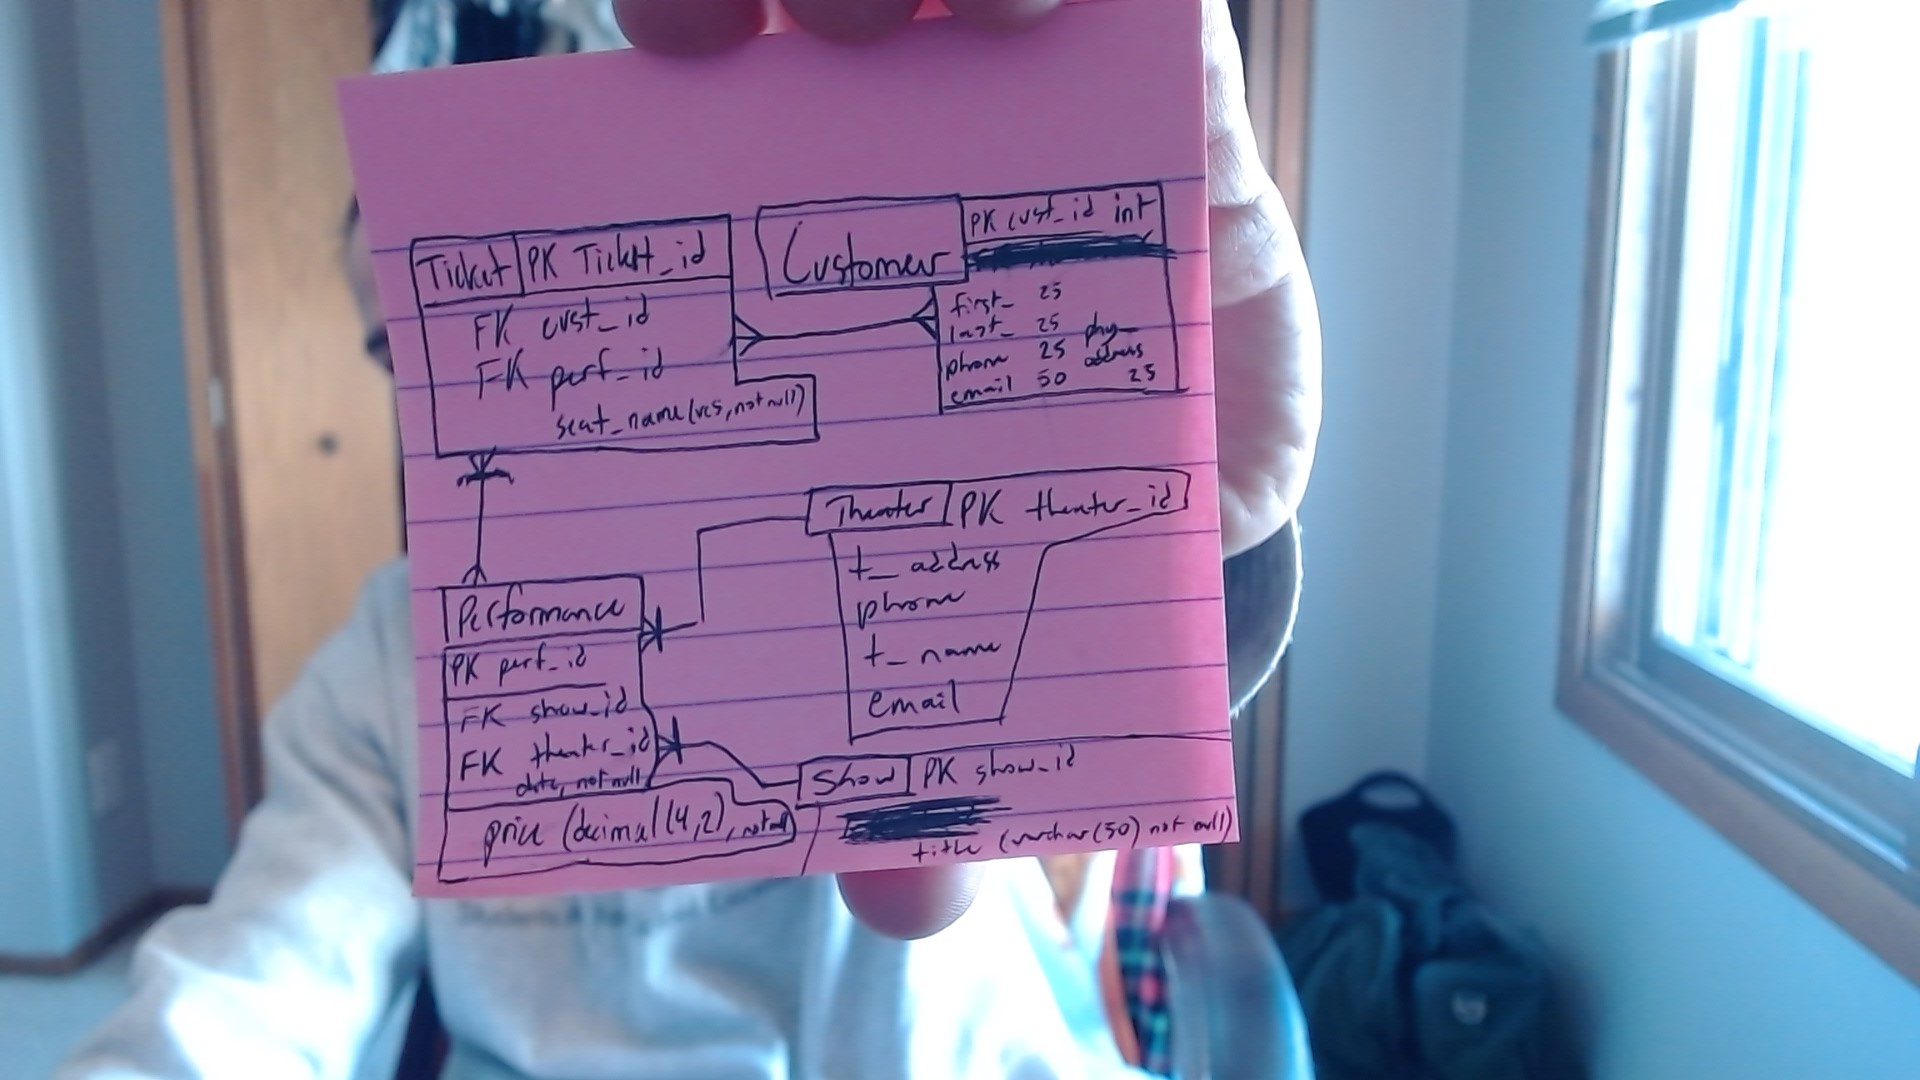 Ticket PK Ticket_id
FK cust_id
FK perf_id
seat_name (vc5, not null)
Customer PK cust_id int
first_ 25
last_ 25
phone 25
email 50
phy_
address
25
Theater PK theater_id
t_address
phone
t_name
email
Performance
PK perf_id
FK show_id
FK theater_id
date, not null
price (decimal(4,2), not null)
Show PK show_id
title (varchar(50) not null)